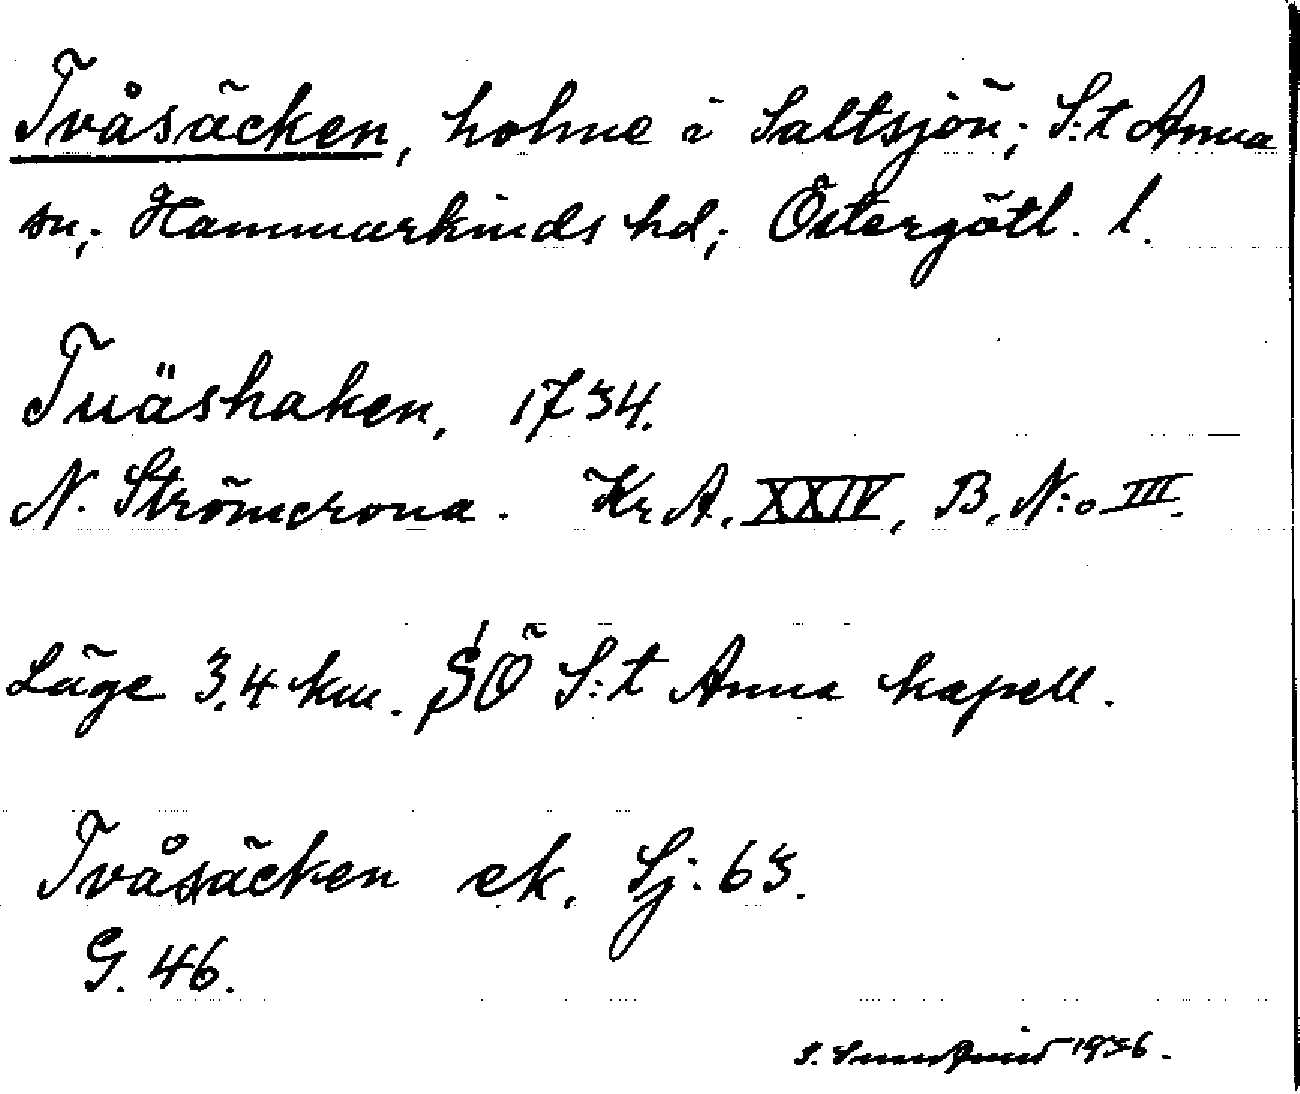 Tvåsäcken, holme i Saltsjön; S:t Anna
sn; Hammarkinds hd; Östergötl. l.
Tuäshaken, 1734.
N. Strömcrona. Kr. A. XXIV, B, N:o III.
Läge 3,4 km. SÖ S:t Anna kapell.
Tvåsäcken ek. Sj: 63.
G. 46.
S. 1936.